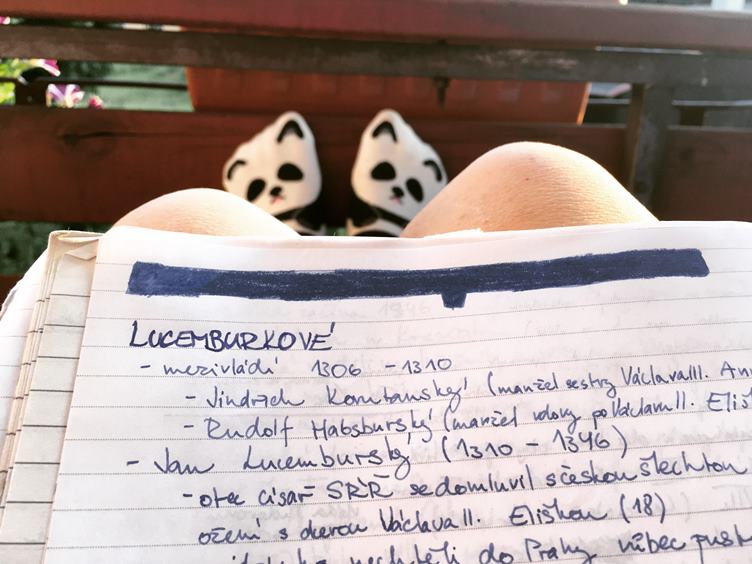 LUCEMBURKOVÉ
- mezivládí 1306 - 1310
- Jindřich Korutanský (manžel sestry Václava III. An
- Rudolf Habsburský (manžel vdovy po Václavu II. Eliš
- Jan Lucemburský (1310 - 1346)
- otec císař SŘŘ se domluvil s českou šlechtou
ožení s dcerou Václava II. Eliškou (18)
nechtěli do Prahy vůbec pust